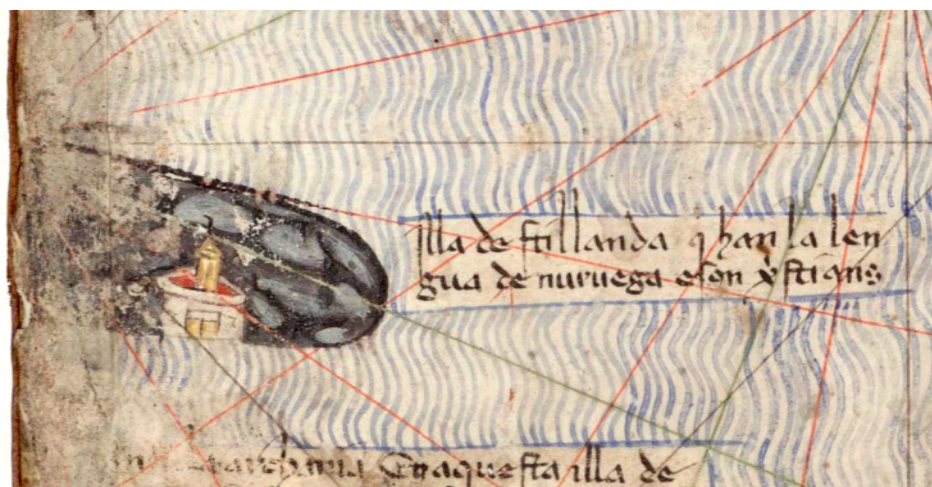 illa de stillanda q̄ han la len
gua de nuruega e son xp̄stians
En aquesta illa de